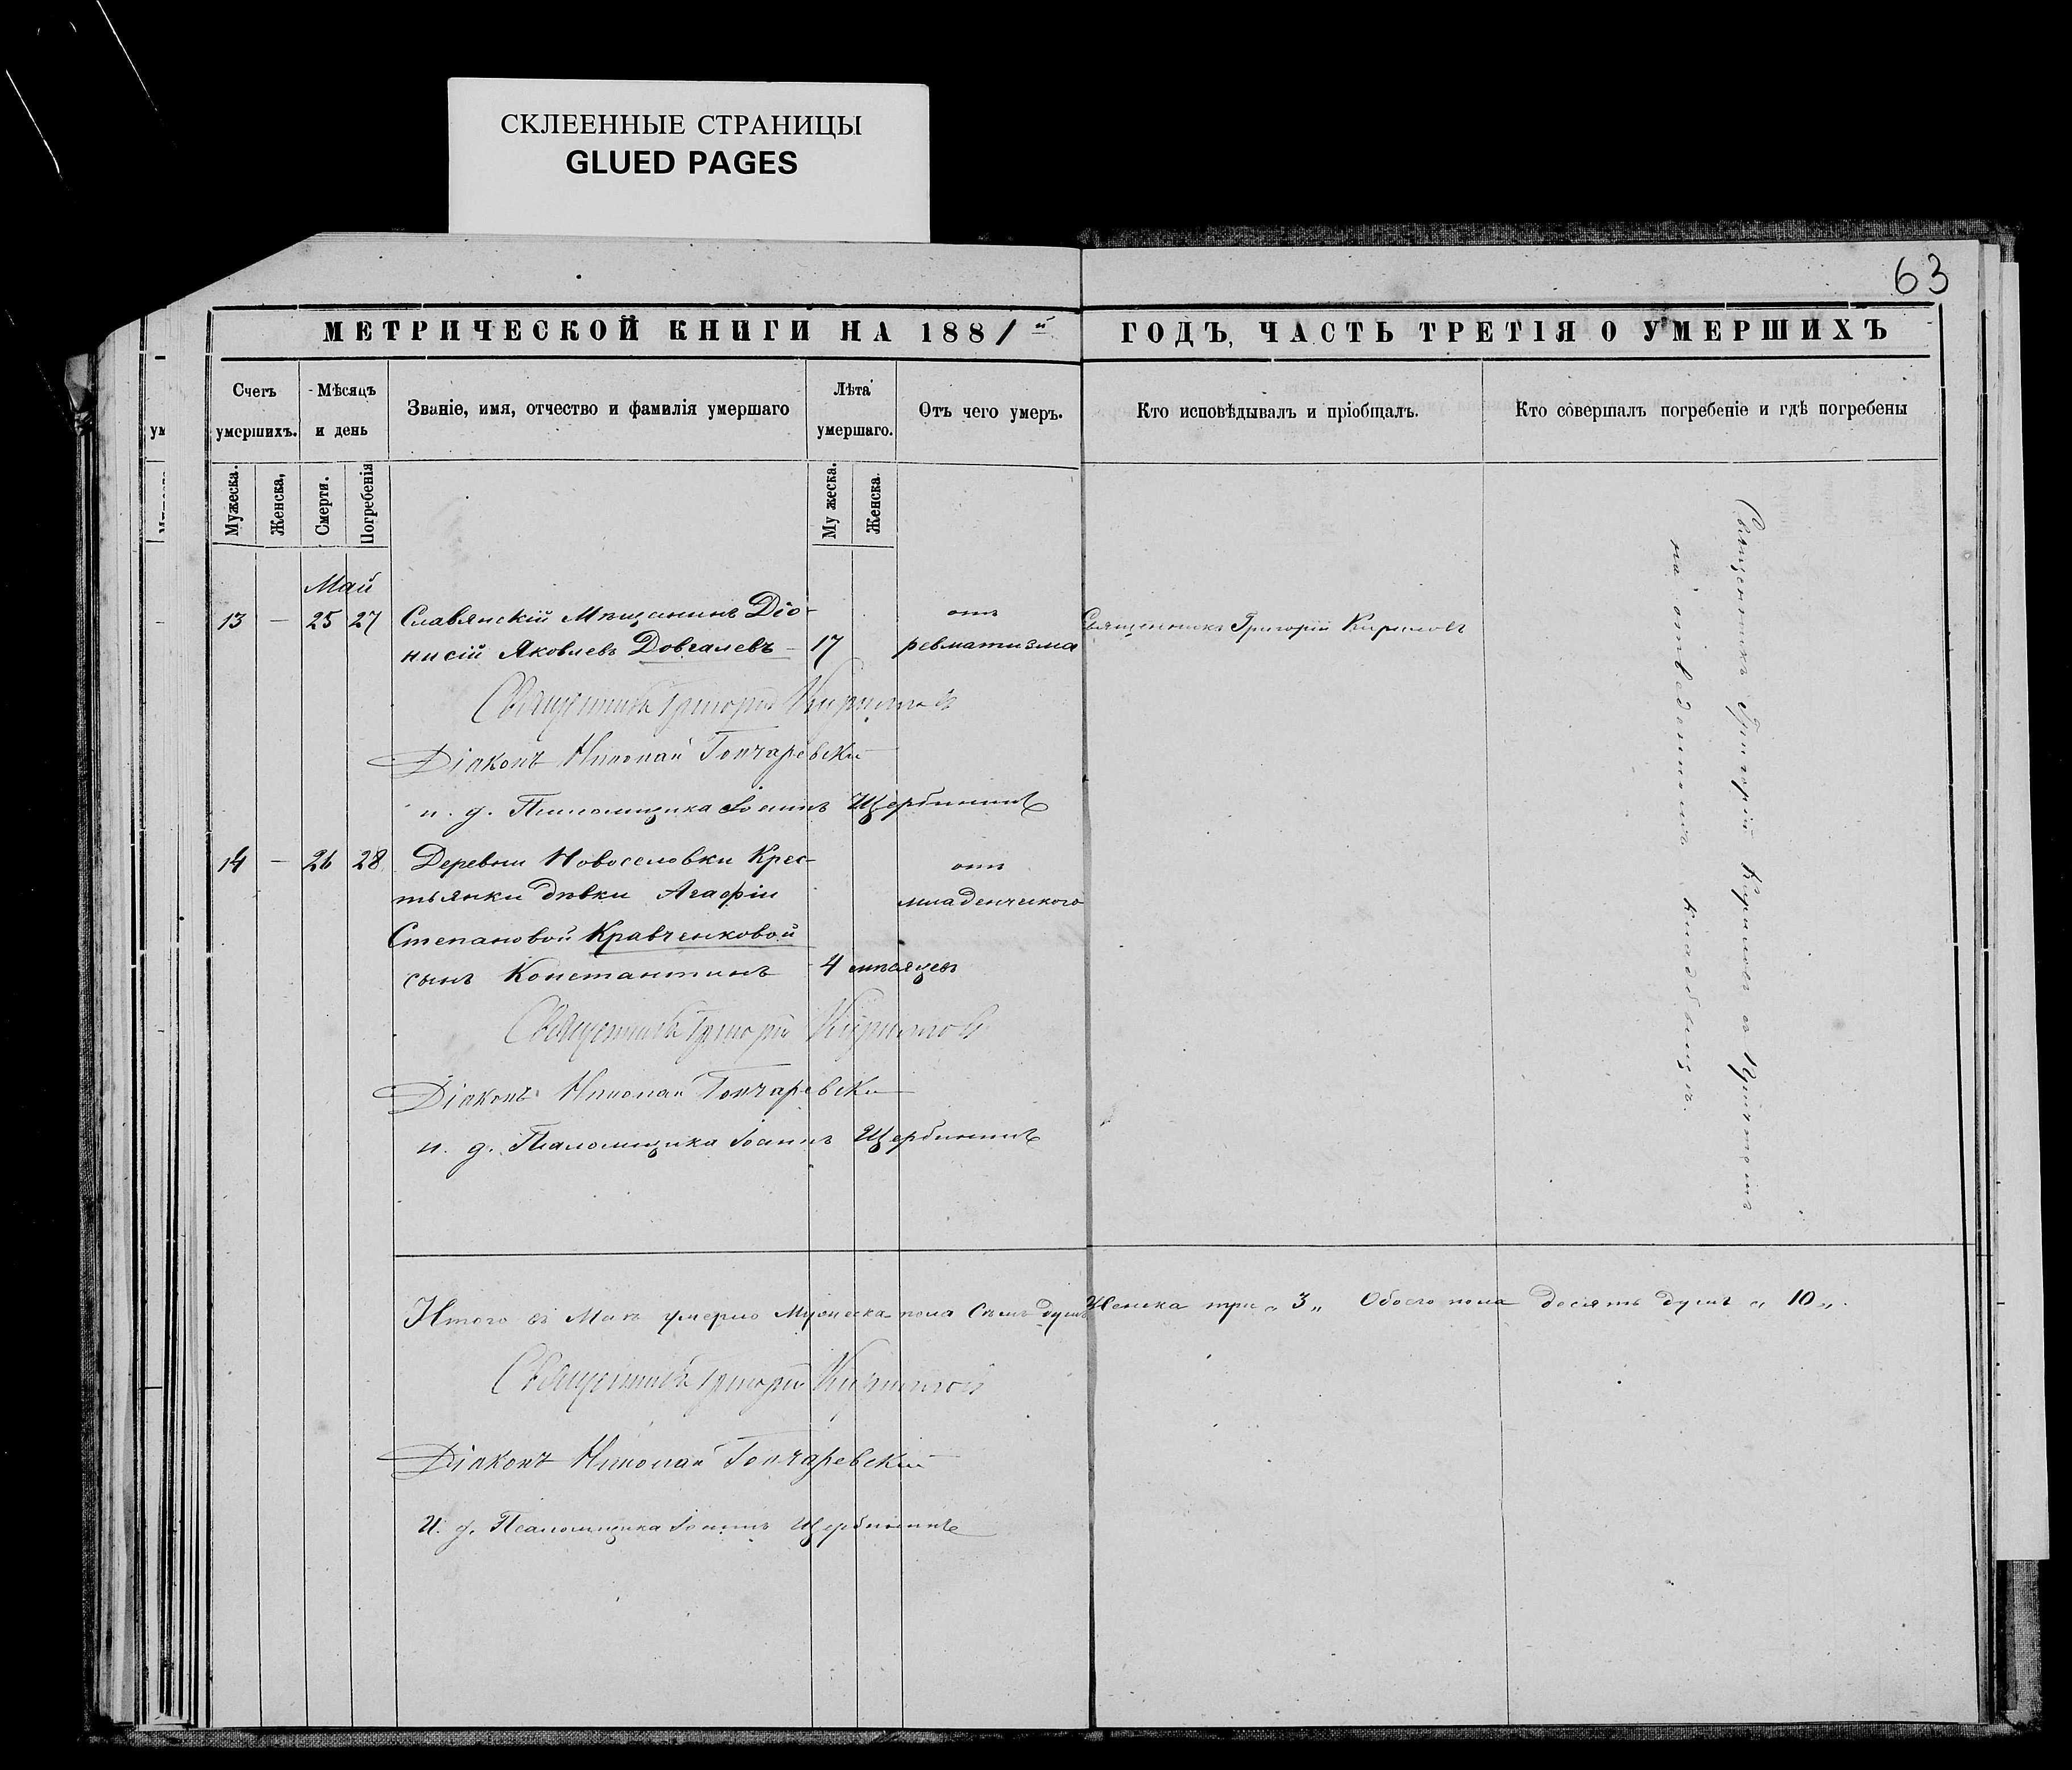 СКЛЕЕННЫЕ СТРАНИЦЫ
GLUED PAGES
63
МЕТРИЧЕСКОЙ КНИГИ НА 1881й ГОДЪ, ЧАСТЬ ТРЕТІЯ О УМЕРШИХЪ
Счетъ умершихъ.
Мѣсяцъ и день
Званіе, имя, отчество и фамилія умершаго
Лѣта умершаго.
Отъ чего умеръ.
Кто исповѣдывалъ и пріобщалъ.
Кто совершалъ погребеніе и гдѣ погребены
Мужеска.
Женска,
Смерти.
Погребенія
Му жеска.
Женска.
Май
13 — 25 27 Славянскій Мѣщанинъ Діо- отъ Священникъ Григорій Кириловъ
нисій Яковлевъ Довгалевъ — 17 ревматизма
Священникъ Григорій Кириловъ
Діаконъ Николай Гончаревскій
и. д. Псаломщика Іоаннъ Щербининъ
14 — 26 28 Деревни Новоселовки Крес- отъ
тьянки дѣвки Агафіи младенческого
Степановой Кравченковой
сынъ Константинъ 4 мѣсяцевъ
Священникъ Григорій Кириловъ
Діаконъ Николай Гончаревскій
и. д. Псаломщика Іоаннъ Щербининъ
Священникъ Григорій Кириловъ съ Причтомъ
на отведенномъ кладбищѣ.
Итого въ Маѣ умерло Мужеска пола Семь душъ Женска три „ 3 „ Обоего пола десять душъ „ 10 „.
Священникъ Григорій Кириловъ
Діаконъ Николай Гончаревскій
И. д. Псаломщика Іоаннъ Щербининъ